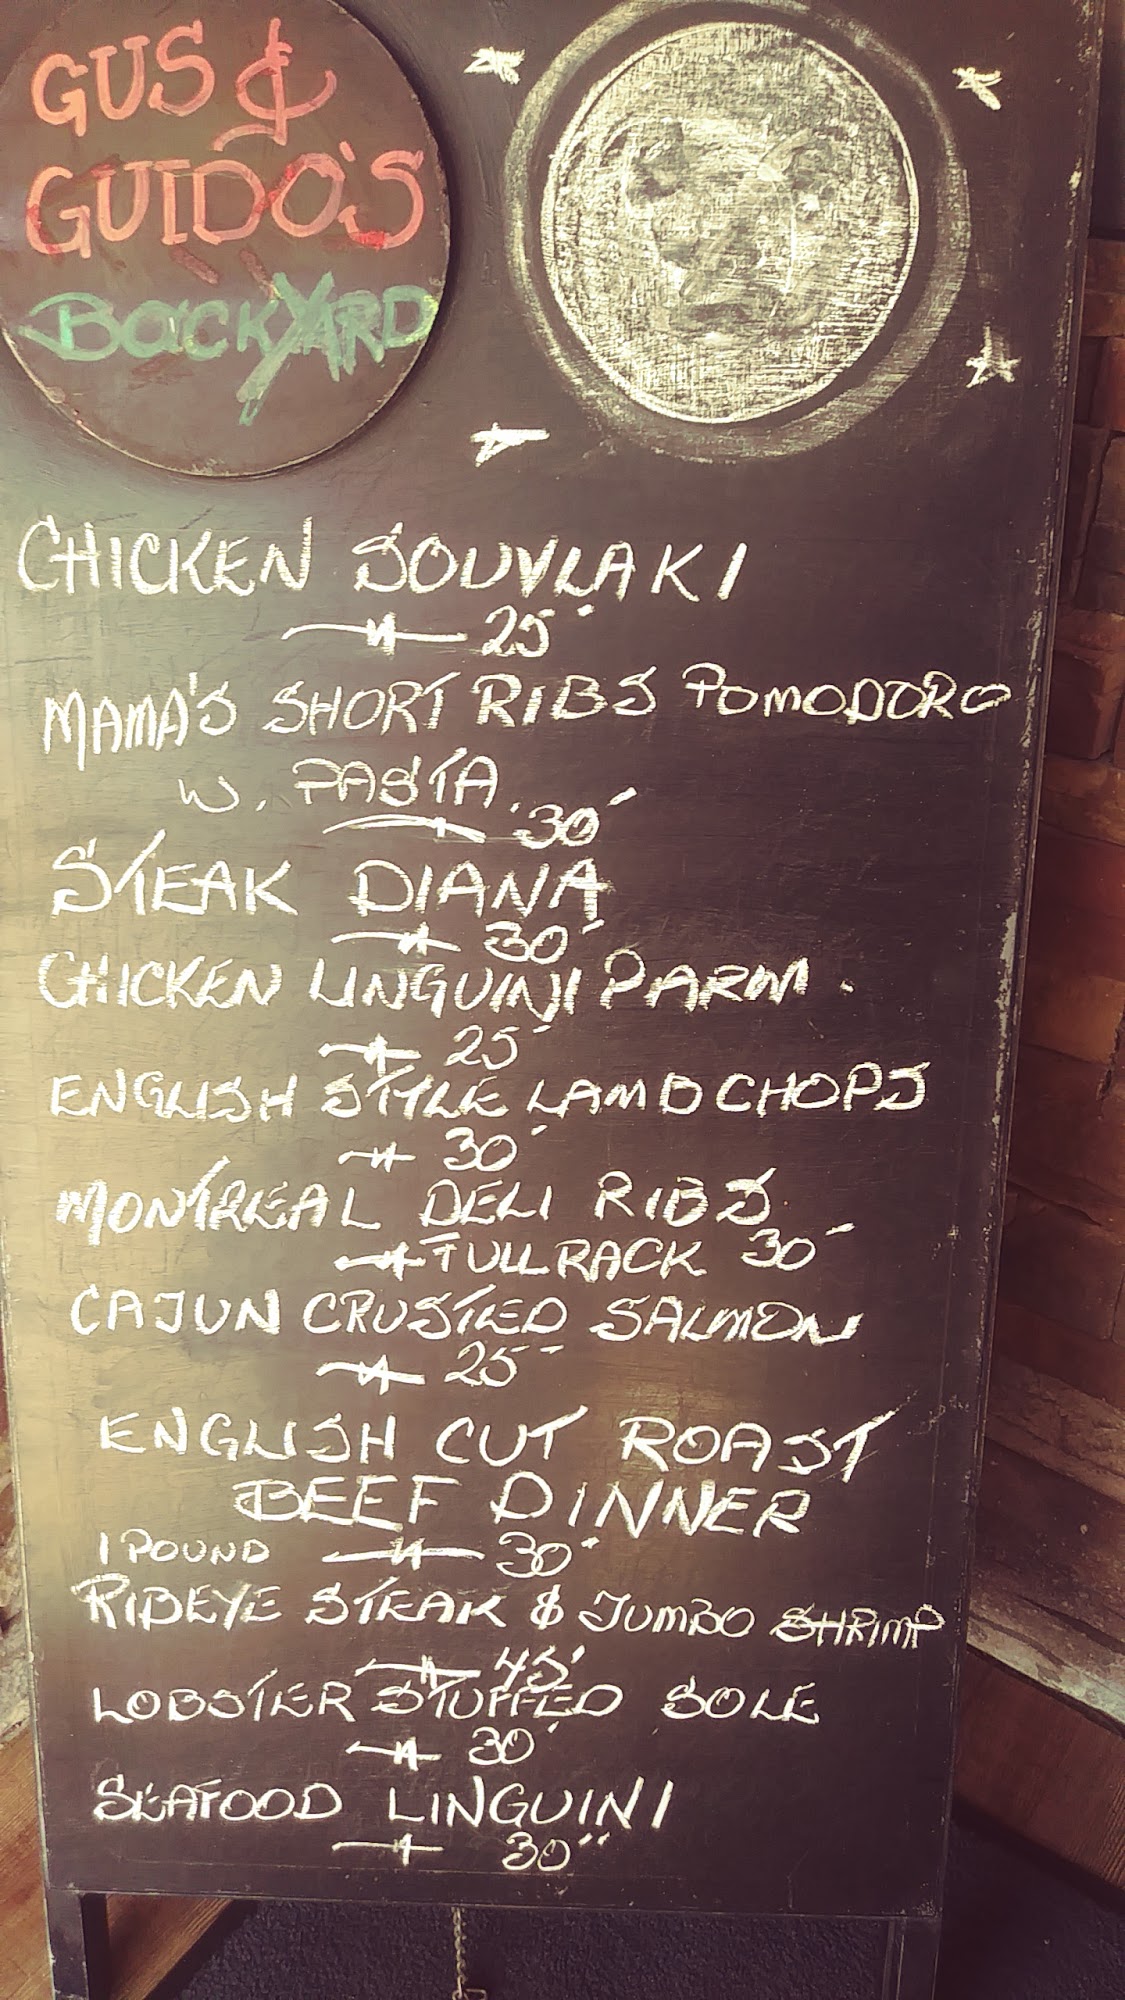 GUS &
GUIDO'S
BACKYARD
CHICKEN SOUVLAKI
25
MAMA'S SHORT RIBS POMODORO
W. PASTA.
30
STEAK DIANA
30
CHICKEN LINGUINI PARM.
25
ENGLISH STYLE LAMB CHOPS
30
MONTREAL DELI RIBS
FULL RACK 30
CAJUN CRUSTED SALMON
25
ENGLISH CUT ROAST
BEEF DINNER
1 POUND 30
RIBEYE STEAK & JUMBO SHRIMP
45
LOBSTER STUFFED SOLE
30
SEAFOOD LINGUINI
30